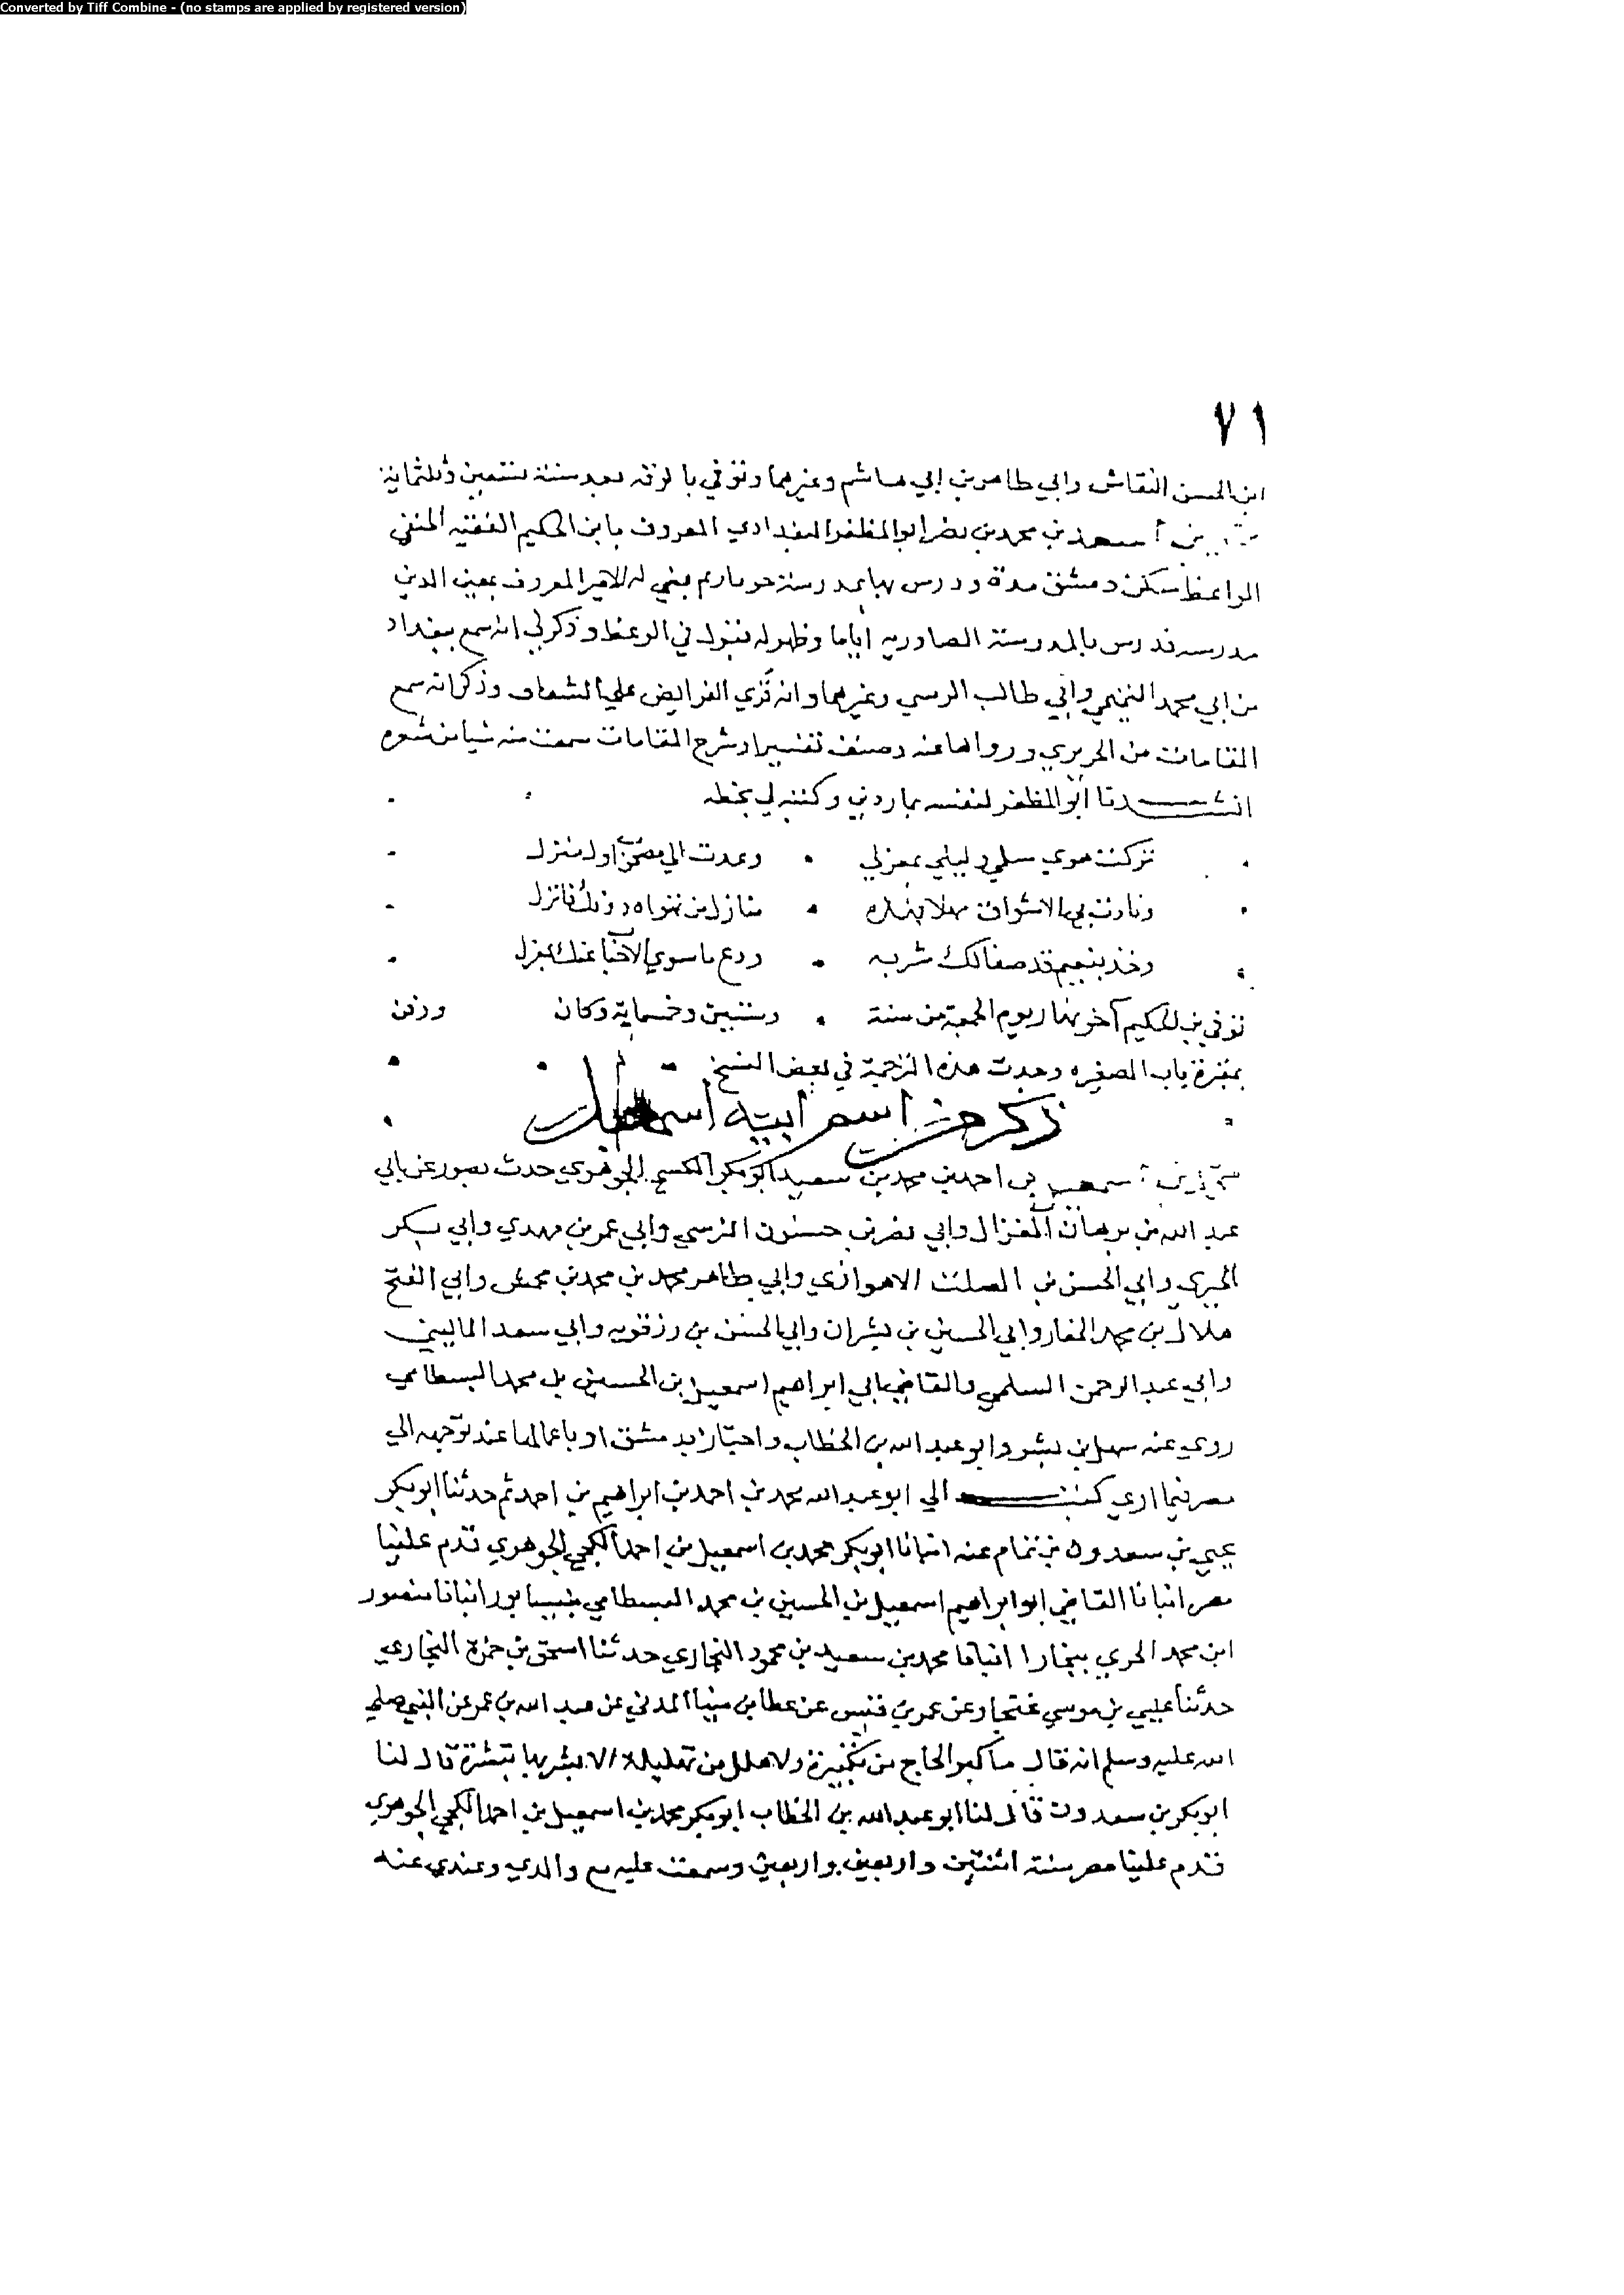 Converted by Tiff Combine - (no stamps are applied by registered version)
٧١
ابن الحسن النقاش وابي طاهر بن ابي هاشم وغيرهما وتوفي بالرقه بعد سنة ستين وثلثماية
بن اسعد بن محمد بن نصر ابو المظفر البغدادي المعروف بابن الحكيم الفقيه الحنفي
الواعظ سكن دمشق مدة ودرس بها بمدرسة وبني له الامير المعروف بمعين الدين
مدرسه ودرس بالمدرسة الصادريه اياما وظهر له قبول في الوعظ وذكر لي انه سمع ببغداد
من ابي محمد التميمي وابي طالب الزينبي وغيرهما وانه قري الفرايض علي الشقاق وذكر انه سمع
المقامات من الحريري ورواها عنه وصنف تفسيرا وشرح المقامات سمعت منه شيا من شعره
انشدنا ابو المظفر لنفسه وكتبه لي بخطه
تركت هوي سلمي وليلي بمعزلي وعدت الي مصحوب اول منزل
ونادت بي الاشواق مهلا فهذه منازل من تهواه دونك فانزل
وخذ بنعيم قد صفا لك شربه ودع ما سوي الاحباب عنك بمعزل
توفي بن الحكيم آخر نهار يوم الجمعة من سنة وستين وخمساية وكان ودفن
بمقبرة باب الصغيره وجدت هذه الترجمة في بعض النسخ
ذكر من اسم ابيه اسمعيل
محمد بن اسمعيل بن احمد بن محمد بن سعيد ابو بكر الجوهري حدث بصور عن ابي
عبد الله بن برهان الغزال وابي نصر بن حسنون النرسي وابي عمر بن مهدي وابي بكر
الحيري وابي الحسن بن الصلت الاهوازي وابي طاهر محمد بن محمد بن محمش وابي الفتح
هلال بن محمد الحفار وابي الحسين بن بشران وابي الحسن بن رزقويه وابي سعد الماليني
وابي عبد الرحمن السلمي والقاضي ابي ابراهيم اسمعيل بن الحسين بن محمد البسطامي
روي عنه سهل بن بشر وابو عبد الله بن الخطاب واجتاز بدمشق او باعمالها عند توجهه الي
مصر فيما اري كتب الي ابو عبد الله محمد بن احمد بن ابراهيم بن احمد ثم حدثنا ابو بكر
يحيي بن سعدون بن تمام عنه انبانا ابو بكر محمد بن اسمعيل بن احمد الجوهري قدم علينا
مصر انبانا القاضي ابو ابراهيم اسمعيل بن الحسين بن محمد البسطامي بنيسابور انبانا منصور
ابن محمد الحربي ببخارا انبانا محمد بن سعيد بن محمود البخاري حدثنا اسحق بن حمزة البخاري
حدثنا عيسي بن موسي غنجار عن عمر بن قيس عن عطا بن المدني عن عبد الله بن عمر عن النبي صلي
الله عليه وسلم انه قال ما كبر الحاج من تكبيرة ولا هلل من تهليلة الا بشر بها تبشرة قال لنا
ابو بكر بن سعدون قال لنا ابو عبد الله بن الخطاب ابو بكر محمد بن اسمعيل بن احمد الجوهري
قدم علينا مصر سنة اثنتين واربعين واربعين وسمعت عليه مع والدي وعندي عنه